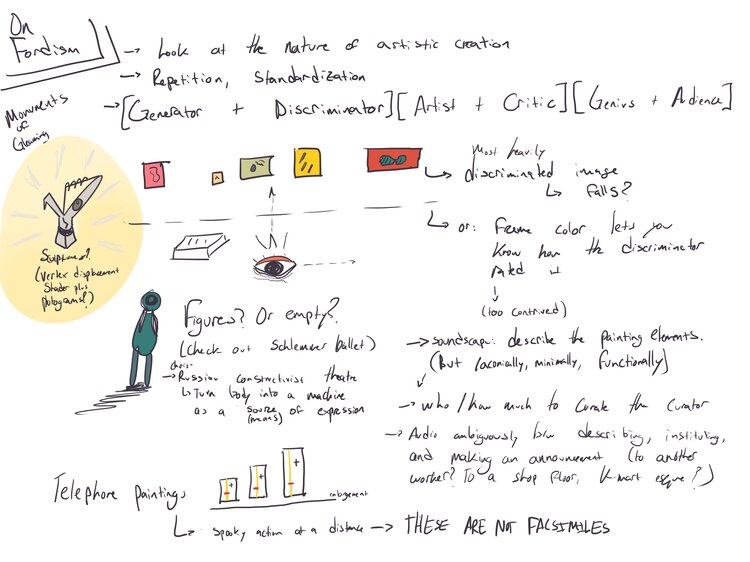 On
Fordism
→ Look at the nature of artistic creation
→ Repetition, standardization
→ [Generator + Discriminator] [Artist + Critic] [Genius + Audience]
Monuments
of
Gleaming
Most heavily
discriminated image
↳ falls?
↳ or: Frame color lets you
know how the discriminator
rated it
↓
(too contrived)
Sculptures?
(vertex displacement
Shader plus
Figures? Or empty?
(Check out Schlemmer ballet)
→ Russian Constructivist theatre
↳ Turn body into a machine
as a source (means) of expression
→ soundscape: describe the painting elements.
(But laconically, minimally, functionally)
→ who / how much to curate the curator
→ Audio ambiguously b/w describing, instituting,
and making an announcement (to another
worker? To a shop floor, K-mart esque?)
Telephone paintings
enlargement
↳ spooky action at a distance → THESE ARE NOT FACSIMILES